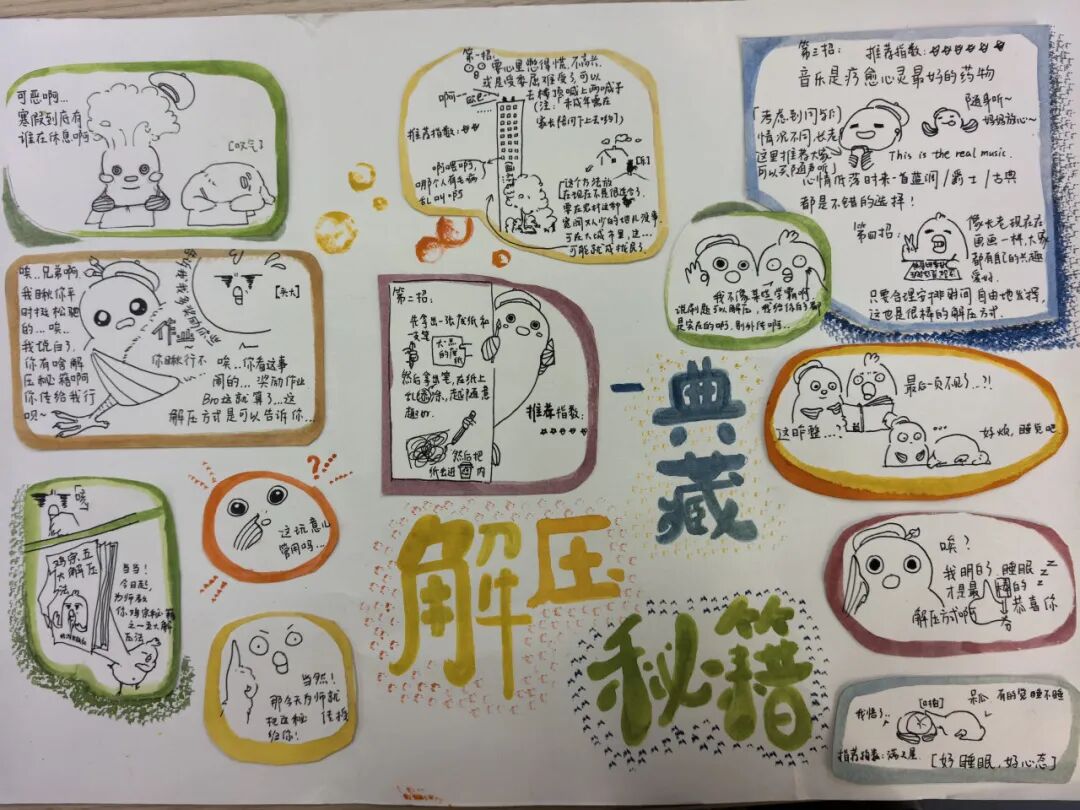 可恶啊...
寒假到底有
谁在休息啊~
[叹气]
唉..兄弟啊
我瞅你平
时挺松弛
的...唉..
我说白了,
你有啥解
压秘籍啊
你传给我行
呗~
[头大]
作业
你瞅行不
唉..你看这事
闹的...奖励作业
Bro这就算了...这
解压方式是可以告诉你...
「唉
鸡宗五
大解压
法
当当!
今日起,
为师教
你鸡宗秘籍
之一五大解
压法
???
这玩意儿
管用吗...
当然!
那今天为师就
把这秘
传授
给你!
第一招:
要心里憋得慌,不高兴,
或是受委屈难受了,可以
去楼顶喊上两嗓子
(注:未成年要在
家长陪同下上去哟~)
啊一~
推荐指数:
啊喂啊,
哪个人有毛病
乱叫.吗
「这个方法放
在现在不是很适合,
要在农村这种
宽阔人少的地儿没事,
可在大城市里,这...
可能就成扰民了
第二招:
先拿出一张废纸和
一支笔
然后拿出笔,在纸上
乱涂,越随意
越好.
然后把
纸出进
内
推荐指数:
第三招:
推荐指数:
音乐是疗愈心灵最好的药物
「考虑到同学们
情况不同,长老
这里推荐大家
可以买随声听」
随身听~
妈妈放心~
This is the real music.
心情低落时来一首蓝调/爵士/古典
都是不错的选择!
第四招:
像长老现在在
画画一样,大家
都有自己的兴趣
爱好.
只要合理安排时间,自由地发挥,
这也是很棒的解压方式.
我不像某些学霸啊,
说刷题可以解压,我给你的都
是实在的啊,别外传啊...
最后一页不见了...?!
这咋整...?
...
好烦,睡觉吧
唉?
我明白了,睡眠
才是最
的
解压方式啊
恭喜你
z z z
我悟了..
[啪]
呆瓜 有的觉睡不睡
推荐指数:满之星
[好睡眠,好心态]
一典藏
解压
秘籍